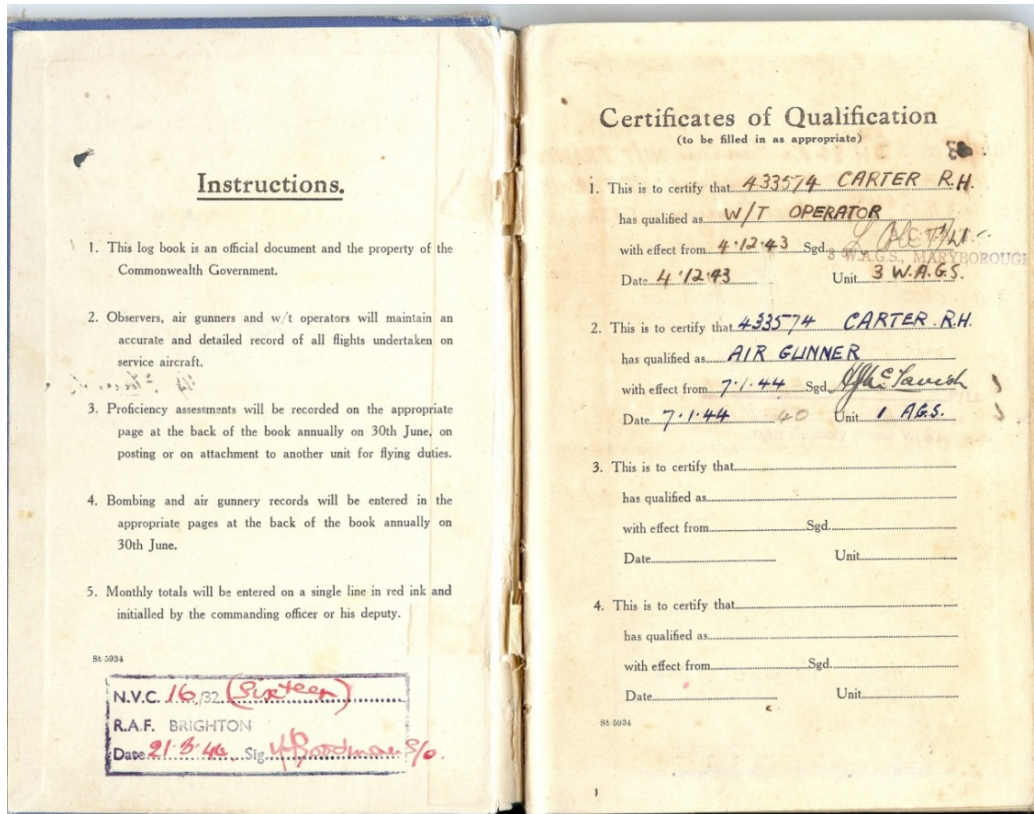 Instructions.
1. This log book is an official document and the property of the
Commonwealth Government.
2. Observers, air gunners and w/t operators will maintain an
accurate and detailed record of all flights undertaken on
service aircraft.
3. Proficiency assessments will be recorded on the appropriate
page at the back of the book annually on 30th June, on
posting or on attachment to another unit for flying duties.
4. Bombing and air gunnery records will be entered in the
appropriate pages at the back of the book annually on
30th June.
5. Monthly totals will be entered on a single line in red ink and
initialled by the commanding officer or his deputy.
St 5934
N.V.C. 16/32 (Sixteen)
R.A.F. BRIGHTON
Date 21.3.44 Sig. Goodman S/O.
Certificates of Qualification
(to be filled in as appropriate)
1. This is to certify that 433574 CARTER R.H.
has qualified as W/T OPERATOR
with effect from 4.12.43 Sgd.
3 W.A.G.S., MARYBOROUGH
Date 4.12.43 Unit 3 W.A.G.S.
2. This is to certify that 433574 CARTER. R.H.
has qualified as AIR GUNNER
with effect from 7.1.44 Sgd. McTavish
Date 7.1.44 40 Unit 1 A.G.S.
3. This is to certify that
has qualified as
with effect from Sgd.
Date Unit
4. This is to certify that
has qualified as
with effect from Sgd.
Date Unit
St 5934